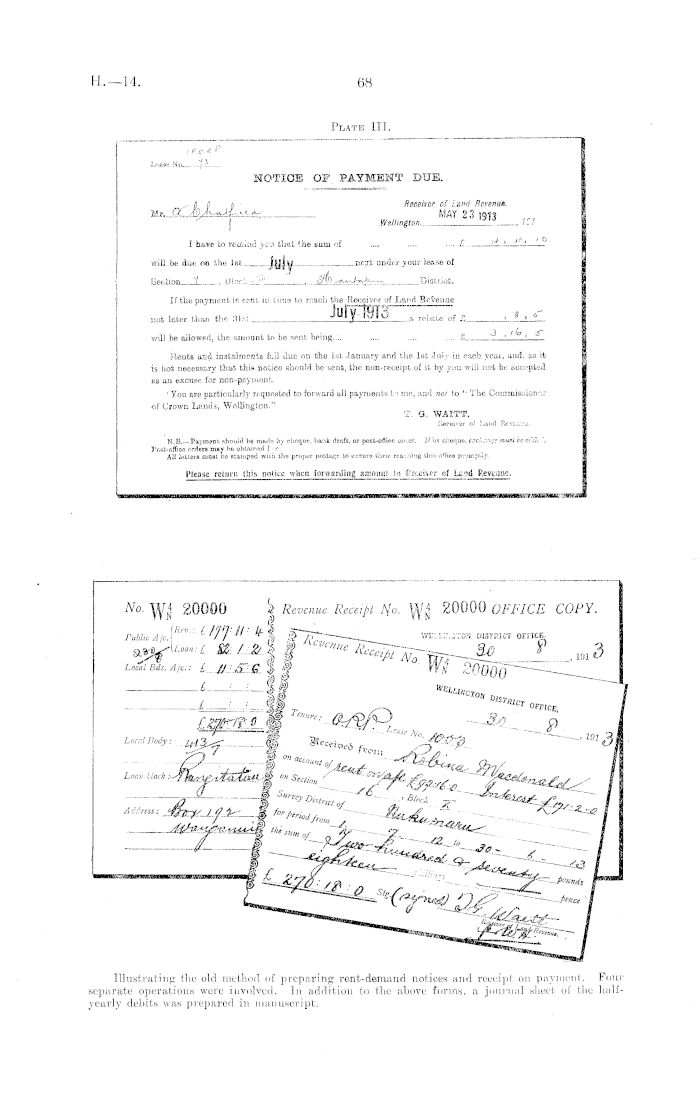 H.—14.
68
Plate III.
Lease No. 73
NOTICE OF PAYMENT DUE.
Receiver of Land Revenue.
Wellington, MAY 23 1913 191
Mr.
I have to remind you that the sum of .... .... .... £
will be due on the 1st July next under your lease of
Section 7, Block District.
If the payment is sent in time to reach the Receiver of Land Revenue
not later than the 31st July 1913 a rebate of £ , 8 , 5
will be allowed, the amount to be sent being.... .... .... £ 3 , 16 , 5
Rents and instalments fall due on the 1st January and the 1st July in each year, and, as it
is not necessary that this notice should be sent, the non-receipt of it by you will not be accepted
as an excuse for non-payment.
You are particularly requested to forward all payments to me, and not to "The Commissioner
of Crown Lands, Wellington."
T. G. WAITT,
Receiver of Land Revenue.
N.B.—Payment should be made by cheque, bank draft, or post-office order. If by cheque, exchange must be added.
Post-office orders may be obtained
All letters must be stamped with the proper postage to ensure their reaching this office promptly.
Please return this notice when forwarding amount to Receiver of Land Revenue.
No. WN 20000
Public A/c.
Rev.: £ 177 : 11 : 4
Loan: £ 82 : 1 : 2
Local Bdz. A/c.: £ 11 : 5 : 6
£ : :
£ : :
£270 : 18 : 0
Local Body:
Loan block: Rangitatau
Address: Box 192
Wanganui
Revenue Receipt No. WN 20000 OFFICE COPY.
WELLINGTON DISTRICT OFFICE,
30 8 , 1913
Revenue Receipt No. WN 20000
WELLINGTON DISTRICT OFFICE,
30 8 , 1913
Tenure: O.R.P. Lease No. 1003
Received from Robina Macdonald
on account of rent on a/c £99.16.0 Interest £171-2-0
on Section 16 , Block X
Survey District of Nukumaru
for period from 1 7 12 to 30 - 6 - 13
the sum of Two hundred & seventy pounds
eighteen shillings pence
£ 270 : 18 : 0 Stg (signed) T. G. Waitt
Receiver of Land Revenue.
Illustrating the old method of preparing rent-demand notices and receipt on payment. Four
separate operations were involved. In addition to the above forms, a journal sheet of the half-
yearly debits was prepared in manuscript.